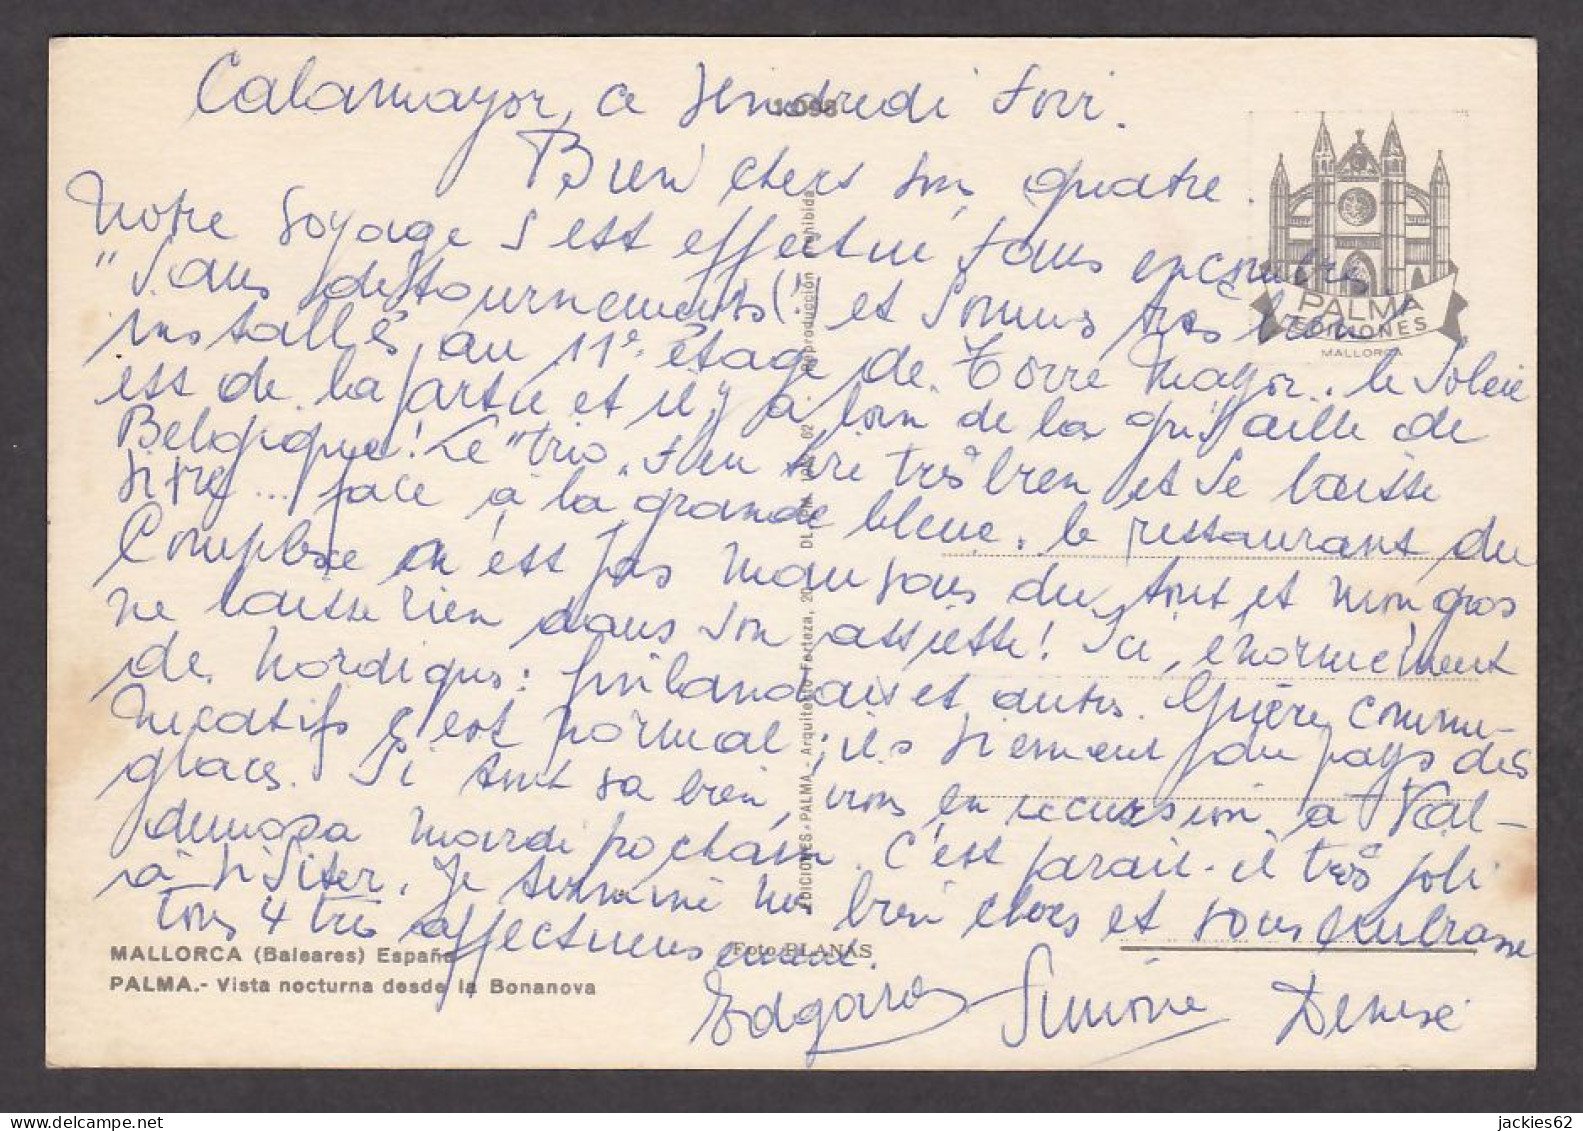 Calamayor, ce Vendredi soir.
1.098
Bien chers Vous quatre.
Notre Voyage s'est effectué sans encombre,
"Sans détournements(!) et sommes très bien
installés au 11e étage de Torre Mayor. Le Soleil
est de la partie et il y a loin de la grisaille de
Belgique! Le "trio" s'en tire très bien et se laisse
vivre... face à la grande bleue. Le restaurant du
Complexe n'est pas mauvais du tout et mon gros
ne laisse rien dans son assiette! Ici, énormément
de Nordiques: finlandais et autres. Guère commu-
nicatifs c'est normal; ils viennent du pays des
glaces. Si tout va bien, irons en excursion à Val-
demosa Mardi prochain. C'est parait-il très joli
à Visiter. Je termine mes bien chers et vous embrasse
Tous 4 très affectueusement.
Edgard Simone Denise
PALMA
EDICIONES
MALLORCA
EDICIONES - PALMA.- Arquitecto Forteza, 20 Reproducción prohibida
MALLORCA (Baleares) España
Foto PLANAS
PALMA.- Vista nocturna desde la Bonanova
jackies62